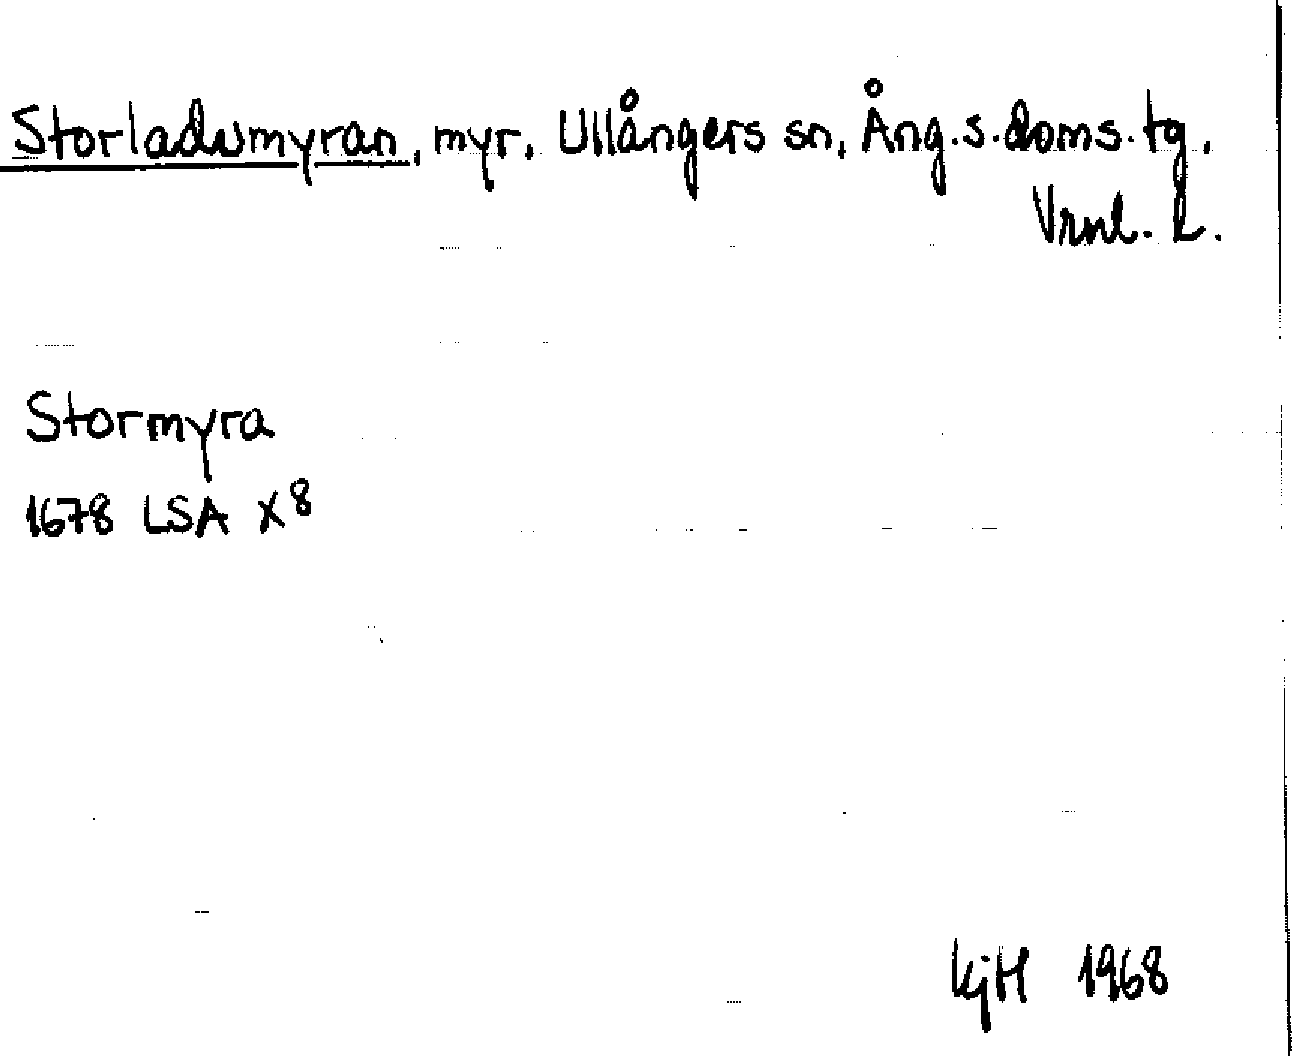 Storladumyran, myr, Ullångers sn, Ång.s.doms.tg,
Vrnl. L.
Stormyra
1678 LSA X8
KjH 1968